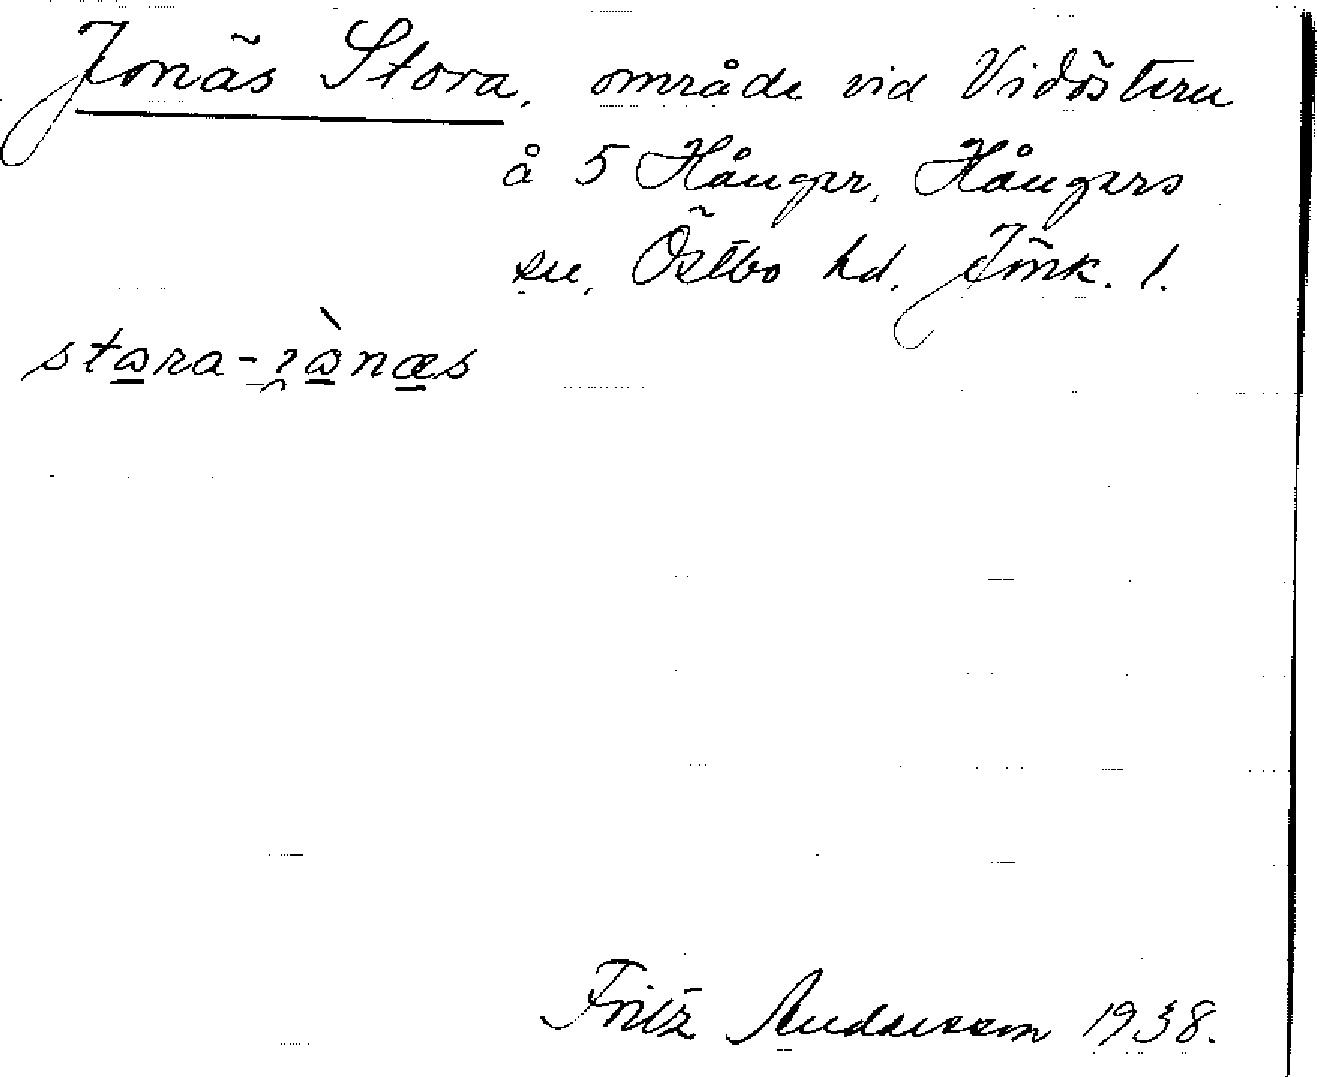 Jonäs Stora, område vid Vidöstern
å 5 Hånger, Hångers
sn, Östbo hd. Jönk. l.
stara-
Fritz Andersson 1938.